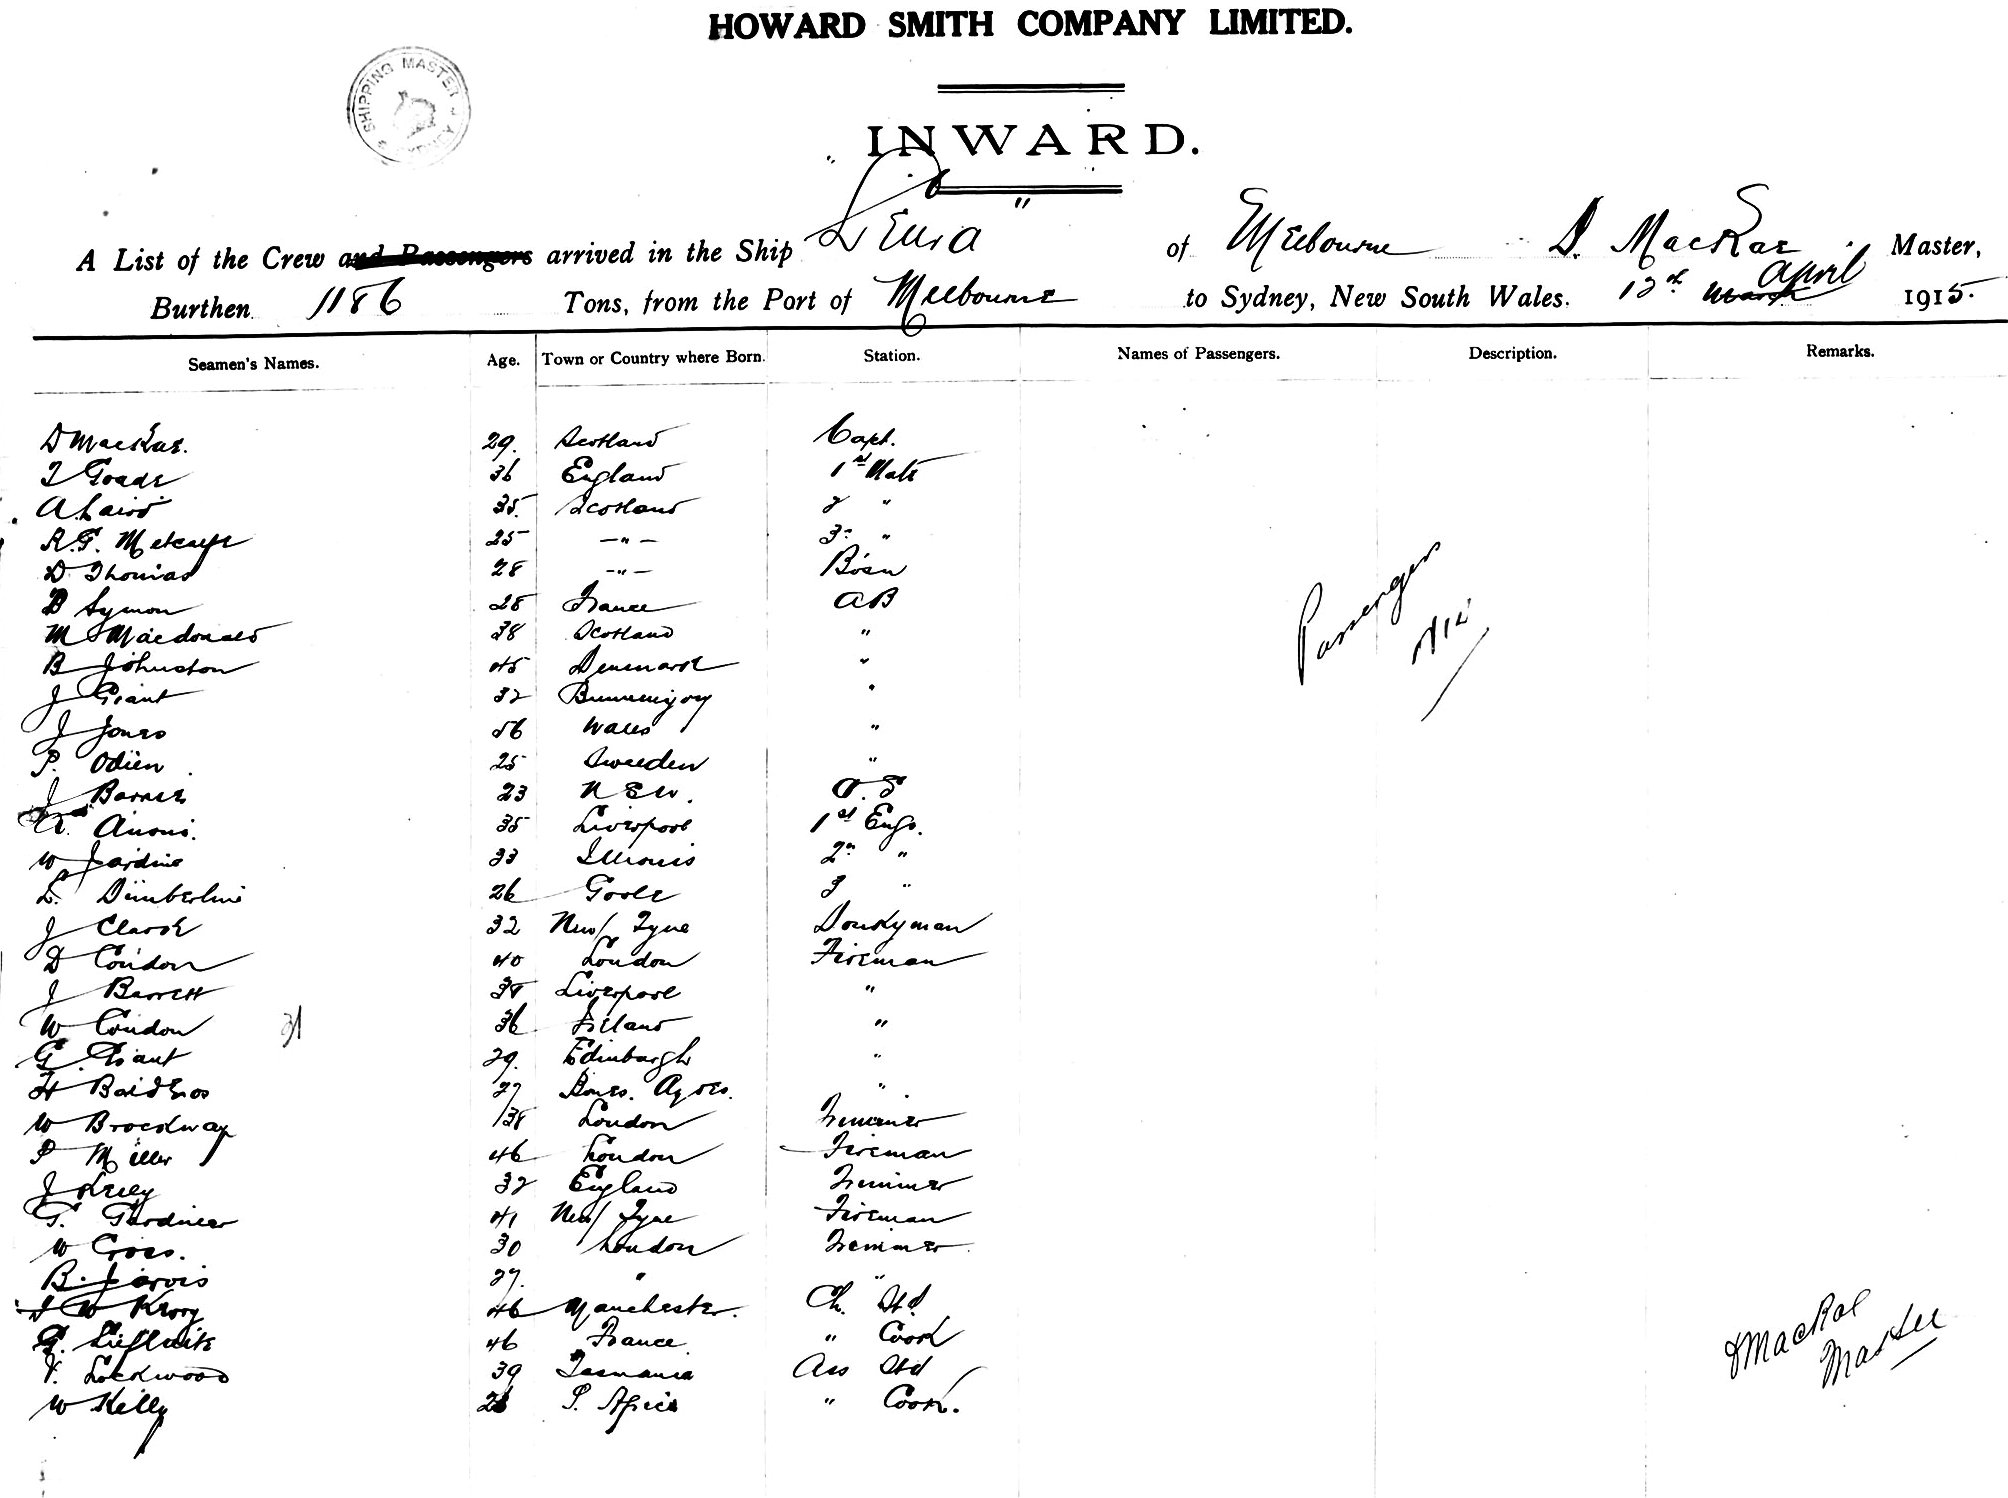 HOWARD SMITH COMPANY LIMITED.
SHIPPING MASTER
INWARD.
A List of the Crew and Passengers arrived in the Ship "Leura" of Melbourne D. MacRae Master,
Burthen 1186 Tons, from the Port of Melbourne to Sydney, New South Wales. 12th March April 1915.
Seamen's Names. Age. Town or Country where Born. Station. Names of Passengers. Description. Remarks.
D MacRae. 29. Scotland Capt.
T Goade 36 England 1st Mate
A. Laird 35. Scotland 2 "
R.G. Metcalfe 25 —"— 3rd "
D Thomas 28 —"— Bosn
B Symon 28 France AB
M Macdonald 38 Scotland "
B Johnston 45 Denmark "
J Grant 32 "
J Jones 56 Wales "
P. Odien 25 Sweeden "
J Barnes 23 N S W. O.S
A. 35 Liverpool 1st Engr.
W Jardine 33 Illronis 2nd "
L. Dimberline 26 Goole 3 "
J Clark 32 New/ Tyne Donkyman
D Condon 40 London Fireman
J Barrett 38 Liverpool "
W Condon 31 36 Ireland "
G. Grant 29. Edinburgh "
H 27 Bones. Ayres. "
W Brockway 38 London Trimmer
P Miller 46 London Fireman
J Kelly 32 England Trimmer
T. Gardiner 41 New/ Tyne Fireman
W Cross. 30 London Trimmer
B. Jarvis 27. " "
W 46 Manchester. Ch. Std.
G. 46 France. " Cook
V. Lockwood 39 Tasmania Ass Std
W Kelly S. Africa " Cook.
Passengers
Nil
D MacRae
Master